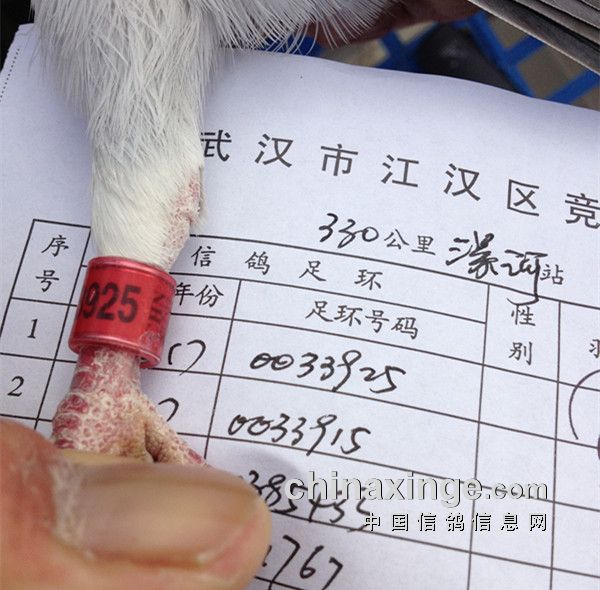 武汉市江汉区竞
330公里漯河站
序号 信鸽足环 性别
年份 足环号码
925
1 17 0033925
2 0033915
385435
767
chinaxinge.com
中国信鸽信息网